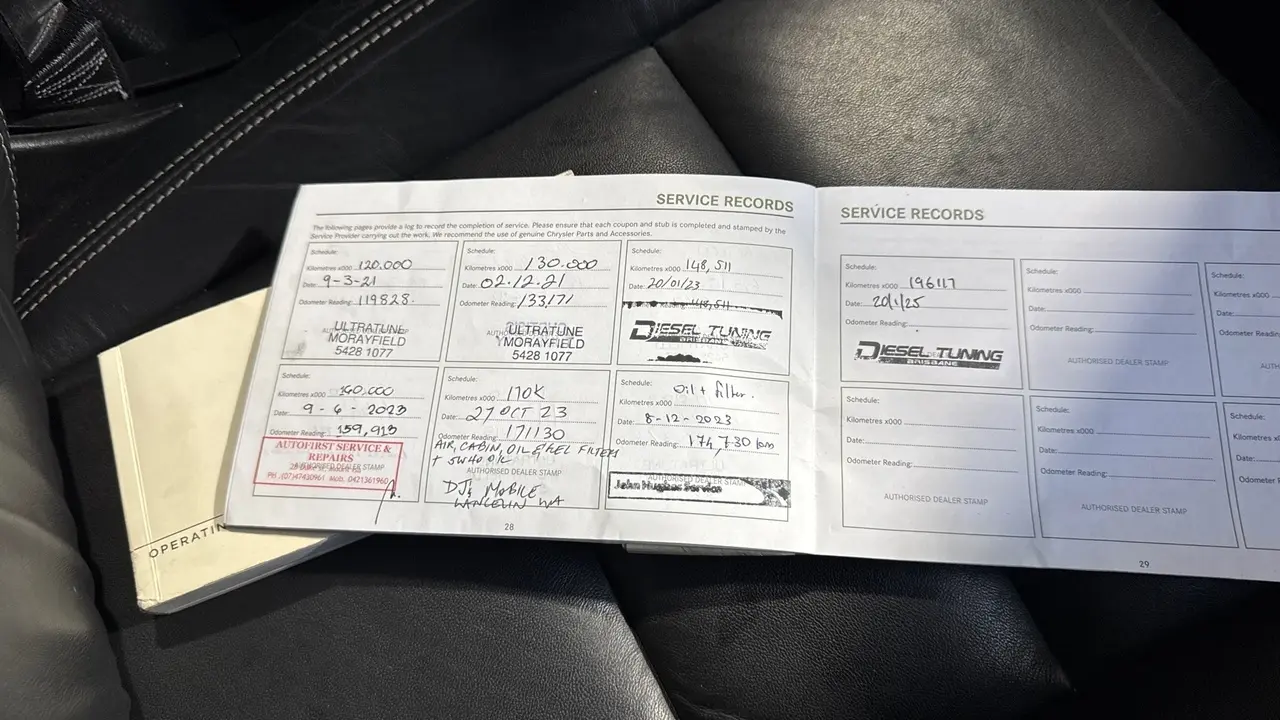 SERVICE RECORDS
The following pages provide a log to record the completion of service. Please ensure that each coupon and stub is completed and stamped by the
Service Provider carrying out the work. We recommend the use of genuine Chrysler Parts and Accessories.
Schedule:
Kilometres x000 120.000
Date: 9-3-21
Odometer Reading: 119828.
ULTRATUNE
MORAYFIELD
5428 1077
Schedule:
Kilometres x000 130.000
Date: 02.12.21
Odometer Reading: 133171
ULTRATUNE
MORAYFIELD
5428 1077
Schedule:
Kilometres x000 148,511
Date: 20/01/23
148,511
DIESEL TUNING
BRISBANE
Schedule:
Kilometres x000 160.000
Date: 9-6-2023
Odometer Reading: 159,913
AUTOFIRST SERVICE &
REPAIRS
AUTHORISED DEALER STAMP
PH :(07)47430961 Mob. 0421361960
Schedule:
Kilometres x000 170K
Date: 27 OCT 23
Odometer Reading: 171130
AIR, CABIN, OIL, FUEL FILTERS
+ 5W40 OIL
AUTHORISED DEALER STAMP
DJs MOBILE
LANCELIN WA
Schedule: Oil + filter.
Kilometres x000
Date: 8-12-2023
Odometer Reading: 174,730 km
AUTHORISED DEALER STAMP
John Hughes Service
28
SERVICE RECORDS
Schedule:
Kilometres x000 196117
Date: 20/1/25
Odometer Reading:
DIESEL TUNING
BRISBANE
Schedule:
Kilometres x000
Date:
Odometer Reading:
AUTHORISED DEALER STAMP
Schedule:
Kilometres x000
Date:
Odometer Readin
Schedule:
Kilometres x000
Date:
Odometer Reading:
AUTHORISED DEALER STAMP
Schedule:
Kilometres x000
Date:
Odometer Reading:
AUTHORISED DEALER STAMP
Schedule:
Kilometres x000
Date:
Odometer
29
OPERATIN